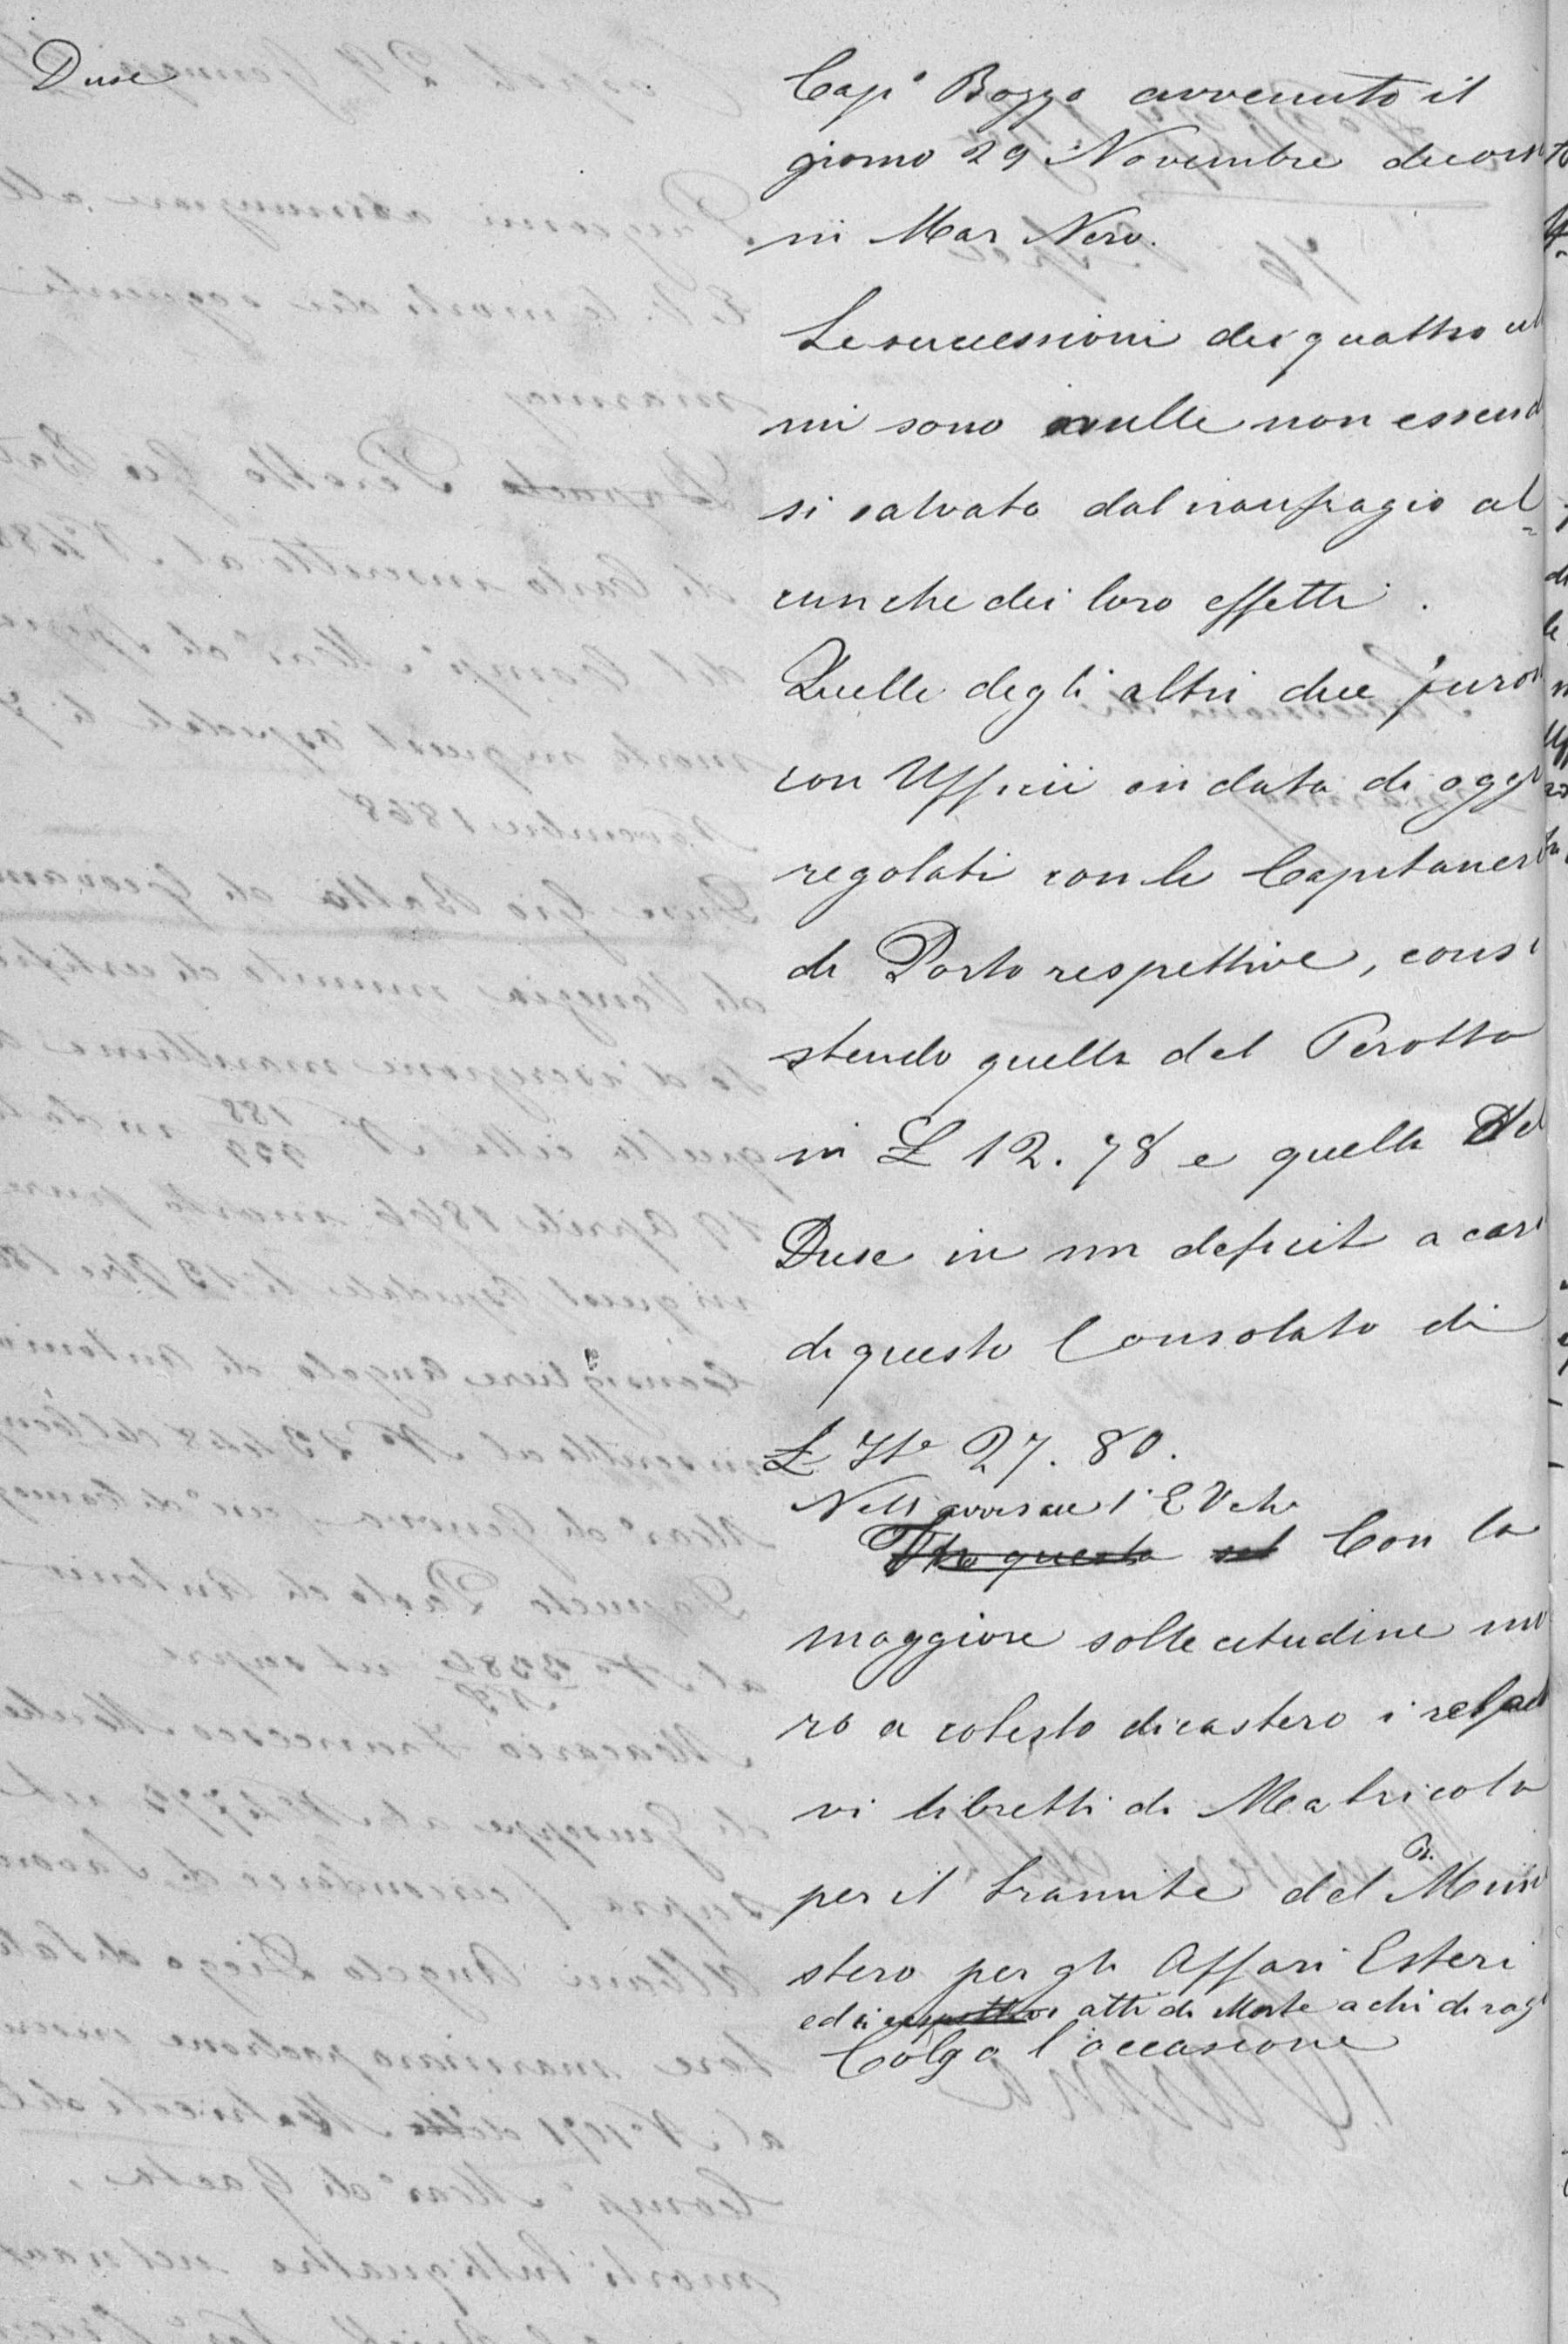 Duse
Cap° Bozzo avvenuto il
giorno 29 Novembre decorso
in Mar Nero.
Le successioni dei quattro ul
mi sono nulle non essend
si salvato dal naufragio al=
cunche dei loro effetti.
Quelle degli altri due furon
con Ufficii in data di oggi
regolati con le Capitaner
di Porto respettive, consi
stendo quella del Perotto
in £ 12.78 e quella del
Duse in un deficit a cari
di questo Consolato di
£ Ite 27.80.
Nell'avvisare l'E V che
Con la
maggiore sollecitudine invi
ro a cotesto dicastero i respetti
vi libretti di Matricola
per il tramite del R. Mini
stero per gli Affari Esteri
ed i respettivi atti di Morte a chi di rag
Colgo l'occasione